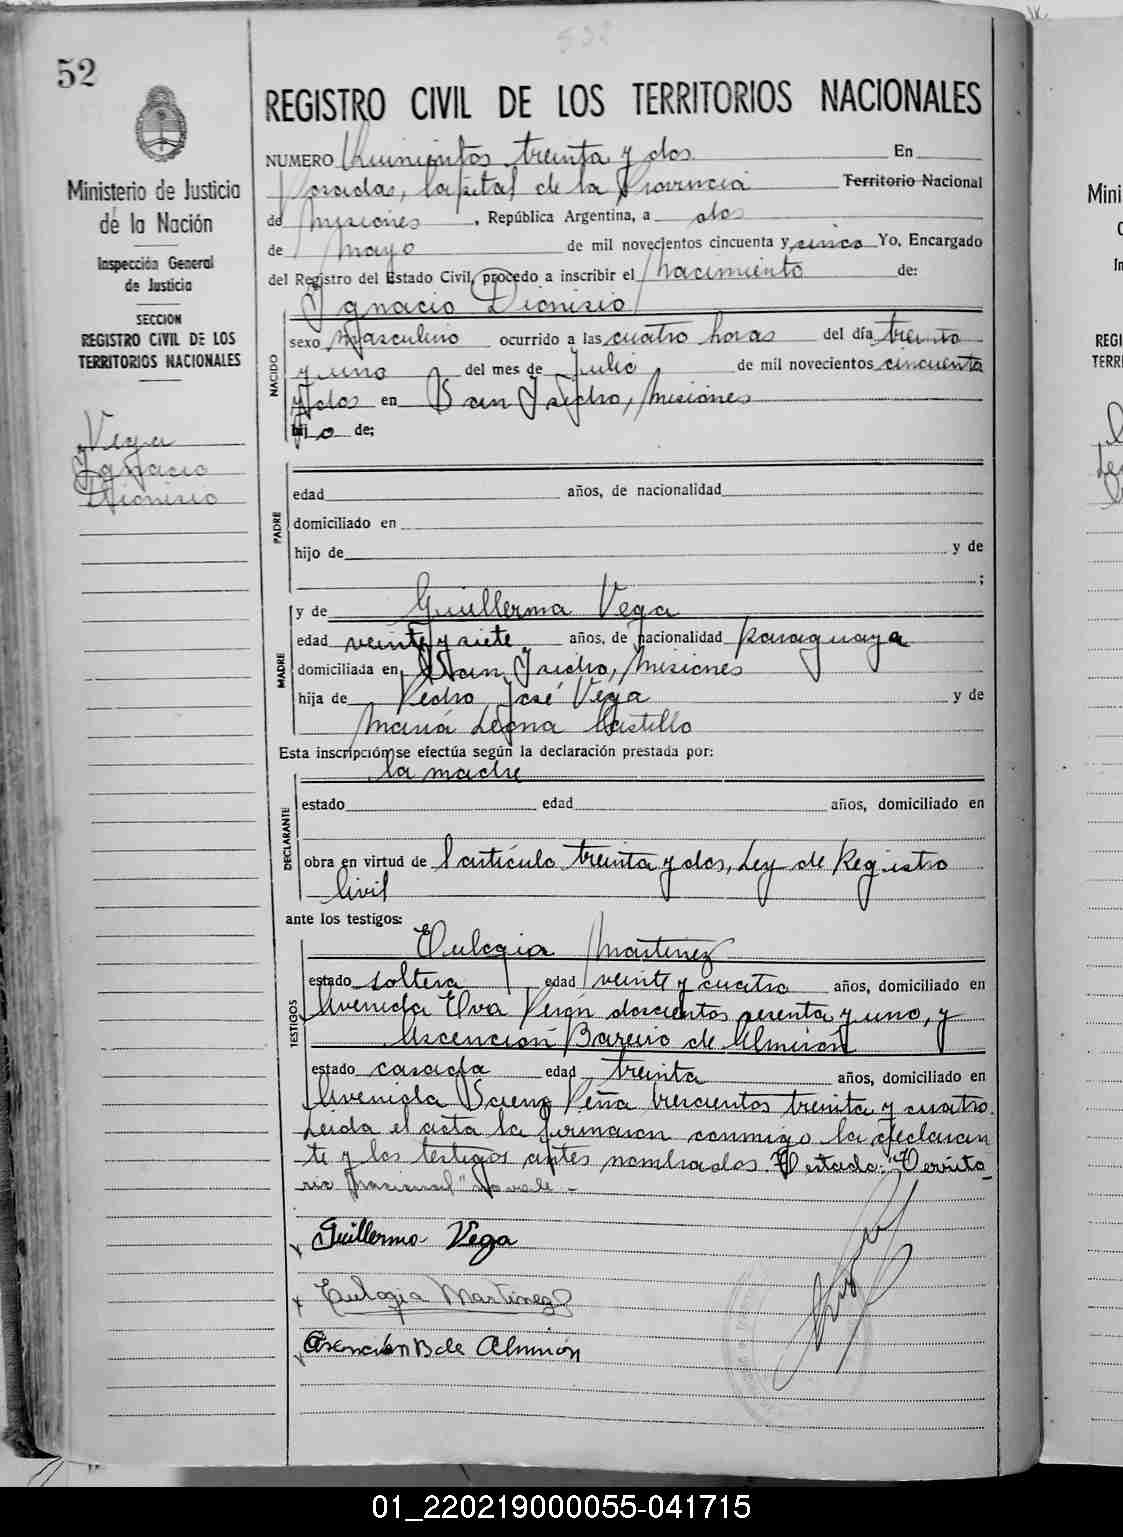 532
52
Ministerio de Justicia
de la Nación
Inspección General
de Justicia
SECCION
REGISTRO CIVIL DE LOS
TERRITORIOS NACIONALES
Vega
Ignacio
Dionisio
REGISTRO CIVIL DE LOS TERRITORIOS NACIONALES
NUMERO Quinientos treinta y dos En
Posadas, Capital de la Provincia Territorio Nacional
de Misiones, República Argentina, a dos
de mayo de mil novecientos cincuenta y cinco Yo, Encargado
del Registro del Estado Civil, procedo a inscribir el Nacimiento de:
Ignacio Dionisio
NACIDO
sexo Masculino ocurrido a las cuatro horas del día treinta
y uno del mes de Julio de mil novecientos cincuenta
y dos en San Isidro, Misiones
hijo de;
PADRE
edad años, de nacionalidad
domiciliado en
hijo de y de
;
MADRE
y de Guillerma Vega
edad veinte y siete años, de nacionalidad paraguaya
domiciliada en San Isidro, Misiones
hija de Pedro José Vega y de
María Castillo
Esta inscripción se efectúa según la declaración prestada por:
la madre
DECLARANTE
estado edad años, domiciliado en
obra en virtud de l'artículo treinta y dos, Ley de Registro
Civil
ante los testigos:
TESTIGOS
Eulogia Martinez
estado soltera edad veinte y cuatro años, domiciliado en
Avenida Eva Perón doscientos sesenta y uno, y
Ascención Bareiro de Almirón
estado casada edad treinta años, domiciliado en
Avenida Saenz Peña trescientos treinta y cuatro.
Leida el acta la firmaron conmigo la declaran
te y los testigos antes nombrados. Testado: "Territo
rio Nacional" no vale.-
Guillerma Vega
Eulogia Martinez
Asención B de Almirón
Mini
REGI
TERR
01_220219000055-041715